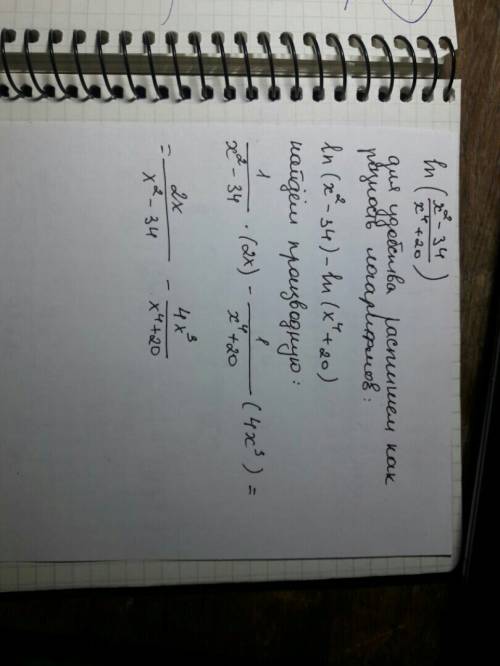 ln(\frac{x^2-34}{x^4+20})
для удобства распишем как
разность логарифмов:
ln(x^2-34)-ln(x^4+20)
найдём производную:
\frac{1}{x^2-34} \cdot (2x) - \frac{1}{x^4+20}(4x^3) =
= \frac{2x}{x^2-34} - \frac{4x^3}{x^4+20}